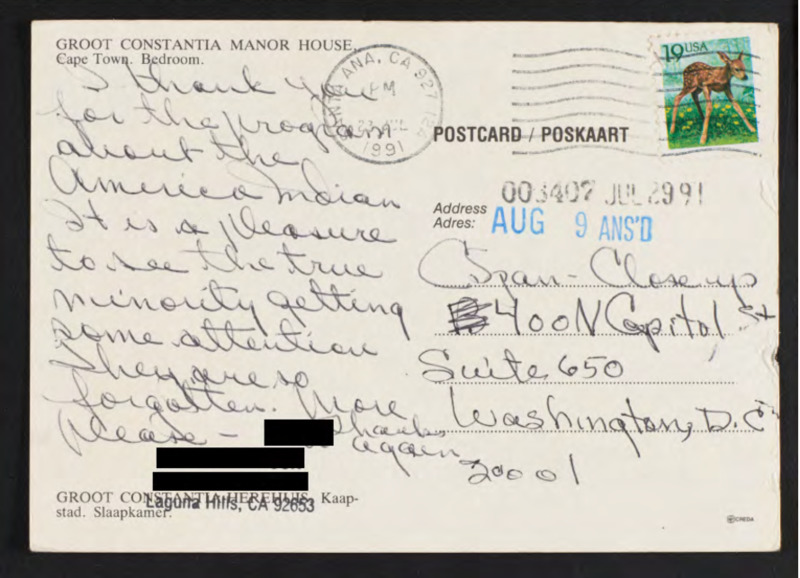 GROOT CONSTANTIA MANOR HOUSE,
Cape Town. Bedroom.
I thank you
for the program
about the
America Indian
It is a pleasure
to see the true
minority getting
some attention
They are so
forgotten. More
please – Thanks
again
Laguna Hills, CA 92653
GROOT CONSTANTIA HEREHUIS, Kaap-
stad. Slaapkamer.
SANTA ANA, CA 927
PM
1991
19USA
POSTCARD / POSKAART
003407 JUL 29 91
Address
Adres:
AUG 9 ANS'D
Cspan-Close up
400 N Capitol St
Suite 650
Washington, D.C.
20001
CREDA